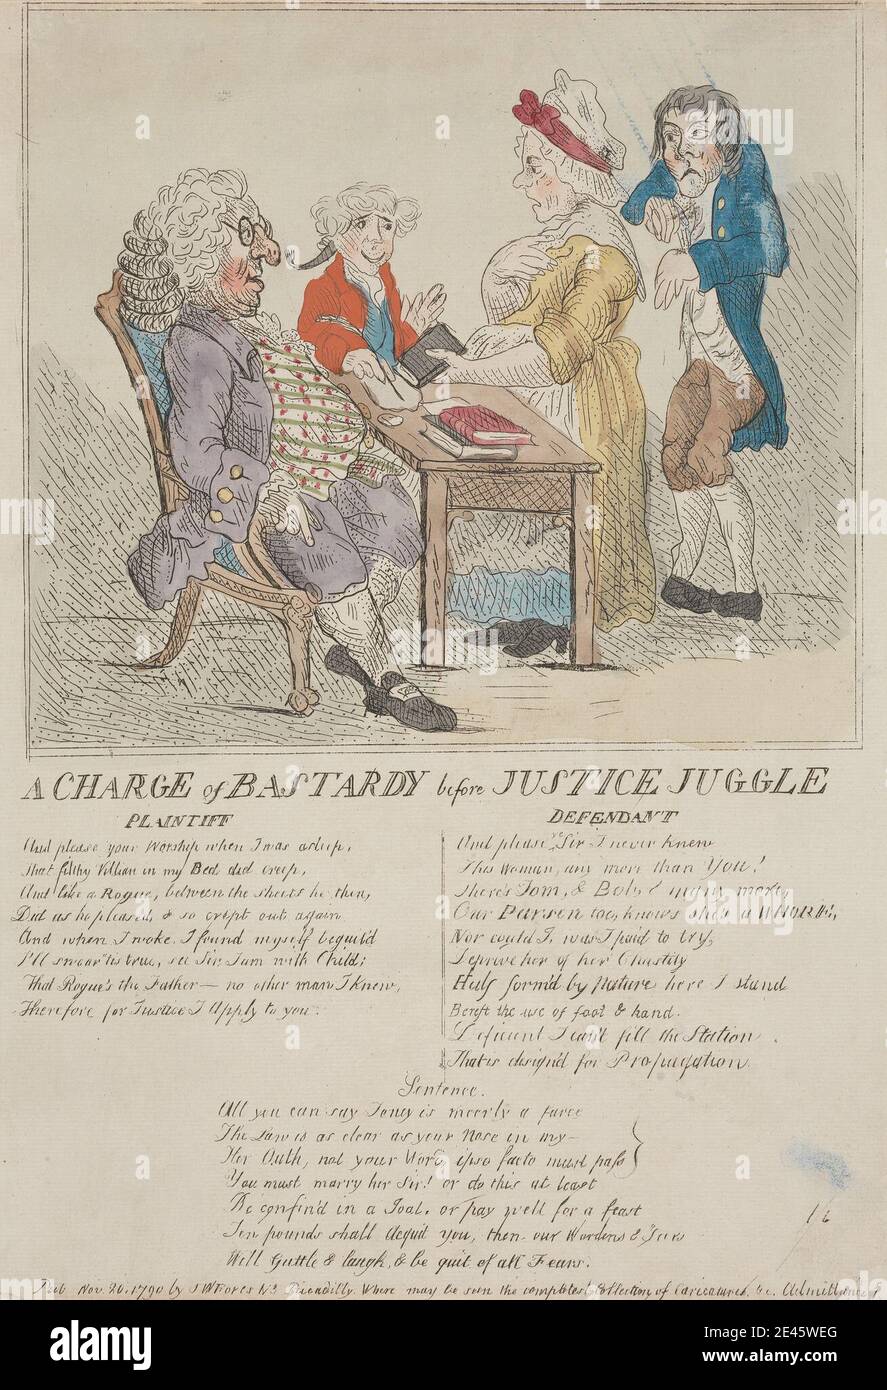 A CHARGE of BASTARDY before JUSTICE JUGGLE
PLAINTIFF
And please your Worship when I was asleep,
That filthy Villian in my Bed did creep,
And like a Rogue, between the sheets he then,
Did as he pleased, & so crept out again
And when I woke I found myself beguil'd
I'll swear 'tis true, see Sir I am with Child;
That Rogue's the Father — no other man I knew,
Therefore for Justice I Apply to you.
DEFENDANT
And please ye Sir I never knew
This Woman, any more than You!
There's Tom, & Bob & many more,
Our Parson too, knows she's a WHORE!,
Nor could I, was I paid to try,
Deprive her of her Chastity
Half form'd by Nature here I stand
Bereft the use of foot & hand.
Deficient I can't fill the Station
That is design'd for Propagation.
Sentence.
All you can say I only is meerly a farce
The Law is as clear as your Nose in my —
Her Oath, not your Word ipso facto must pass
You must marry her Sir! or do this at least
Be confin'd in a Goal, or pay well for a feast
Ten pounds shall Acquit you, then our Wardens &
Will Guttle & laugh, & be quit of all Fears.
Pub Nov 20, 1790 by S W Fores No 3 Piccadilly Where may be seen the completest Collection of Caricatures &c. Admittance 1
alamy
Image ID: 2E45WEG
www.alamy.com